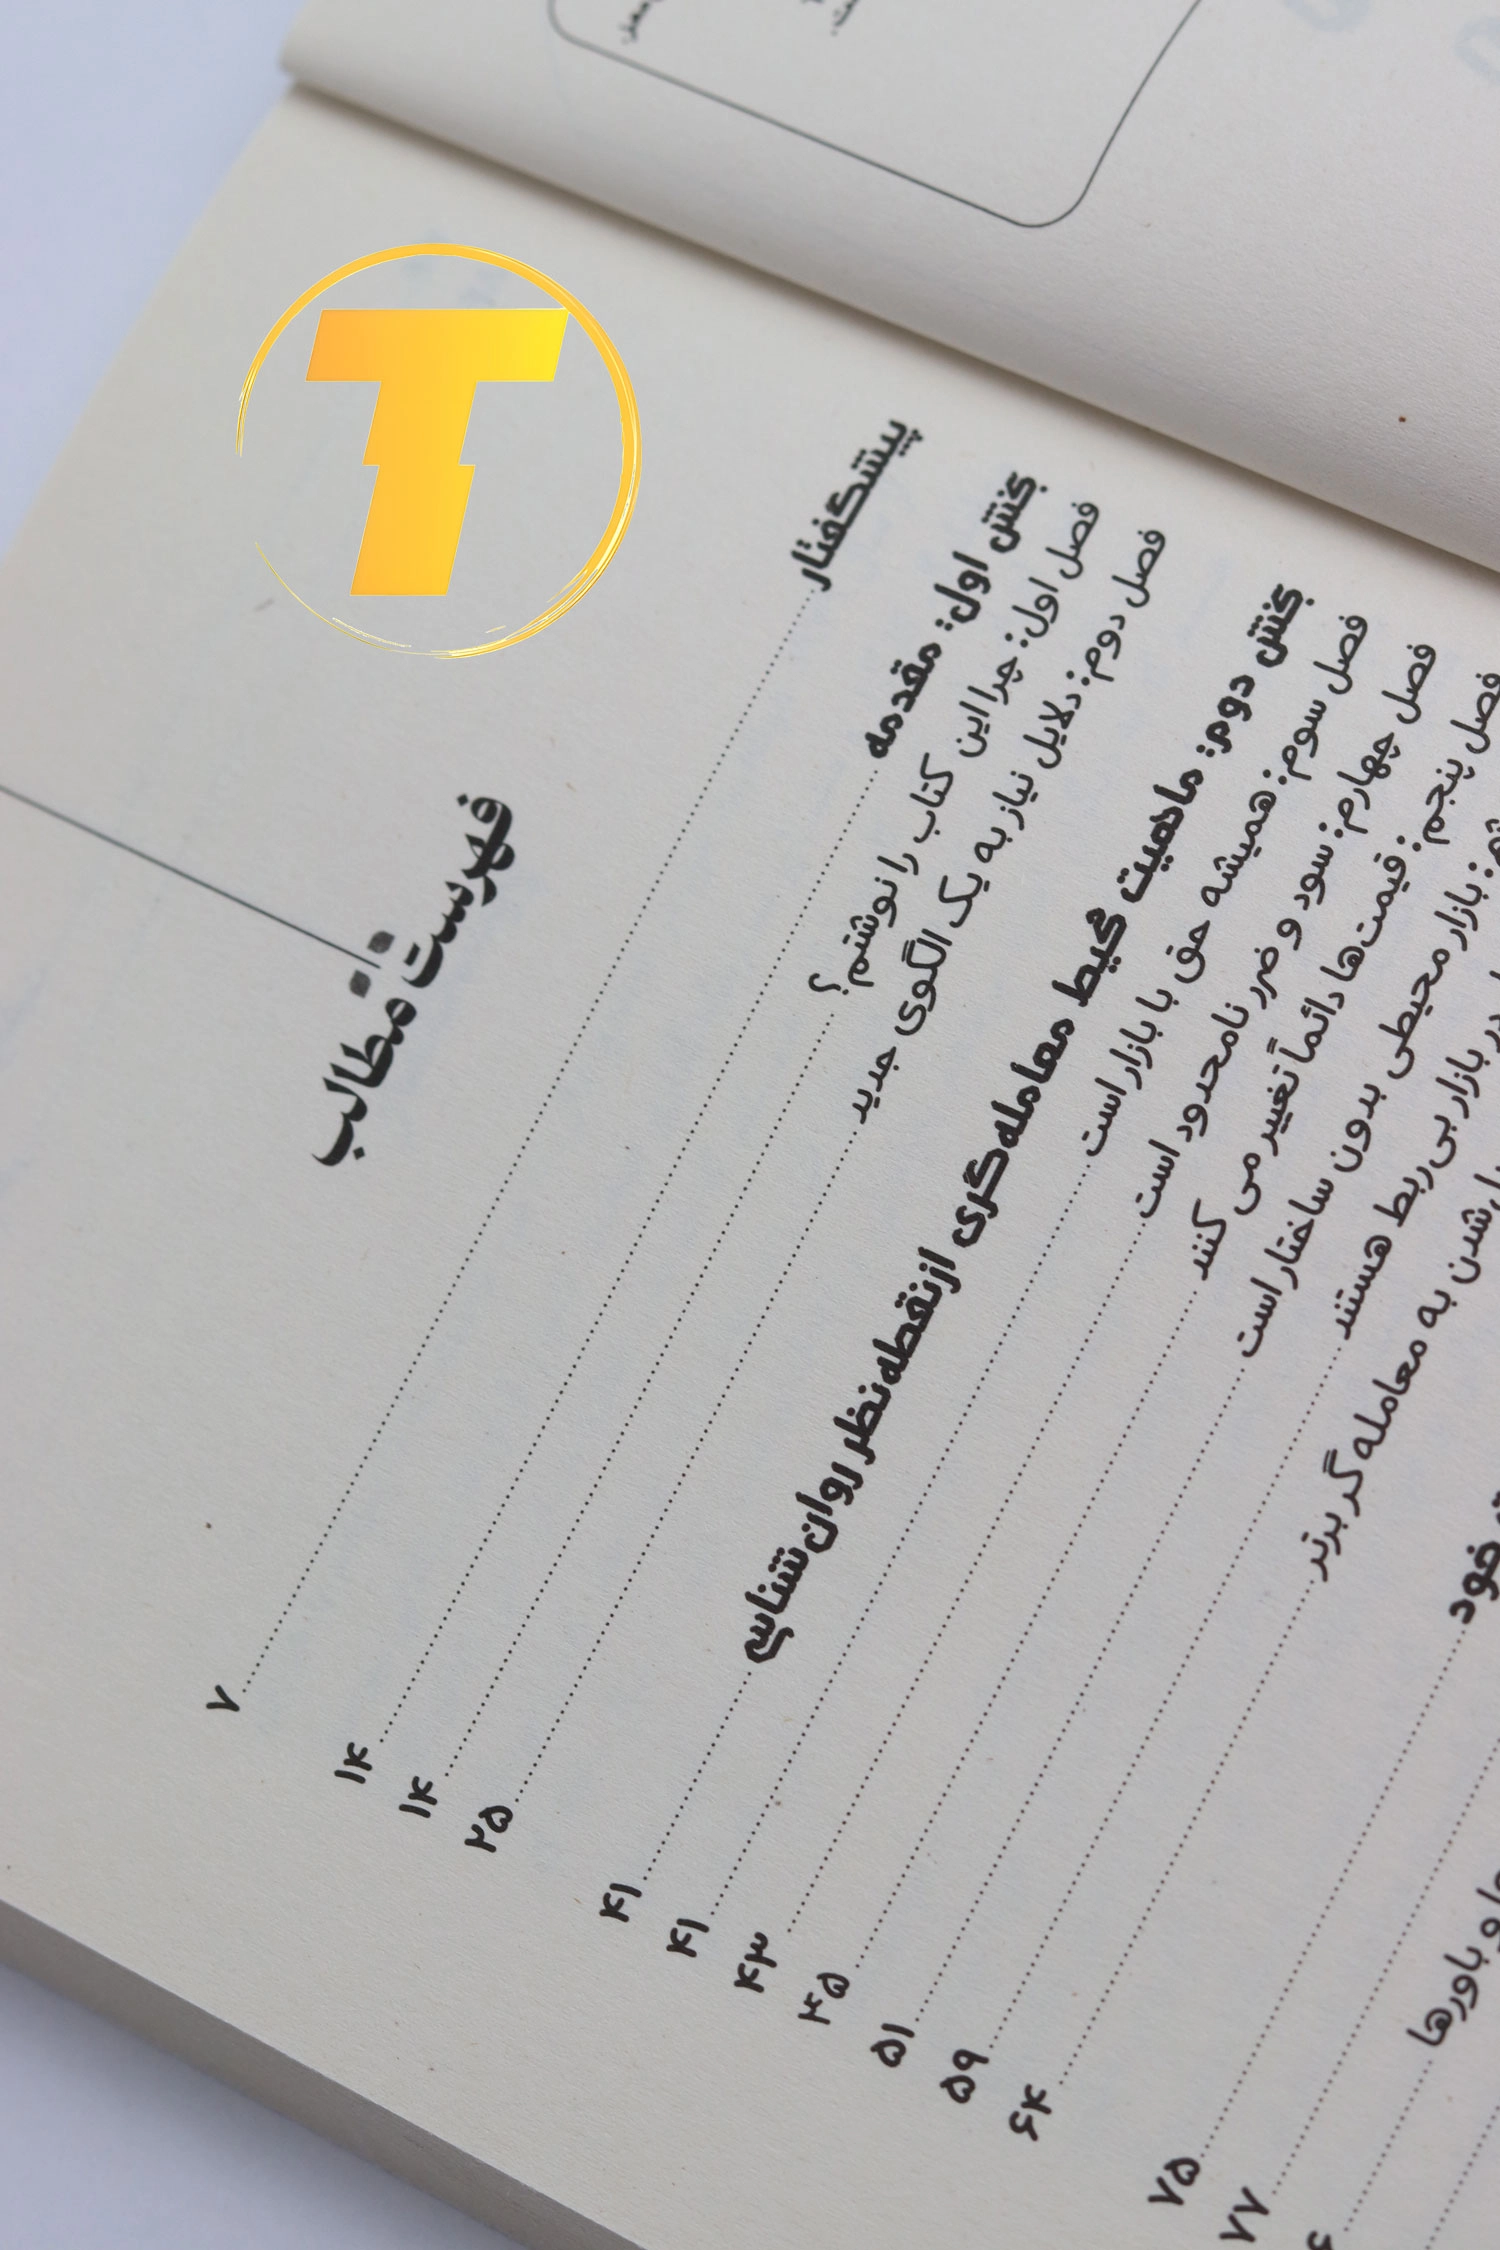 فهرست مطالب
پیشگفتار ۷
بخش اول: مقدمه ۱۴
فصل اول: چرا این کتاب را نوشتم؟ ۱۴
فصل دوم: دلایل نیاز به یک الگوی جدید ۲۵
بخش دوم: ماهیت محیط معامله‌گری از نقطه نظر روان‌شناسی ۴۱
فصل سوم: همیشه حق با بازار است ۴۱
فصل چهارم: سود و ضرر نامحدود است ۴۳
فصل پنجم: قیمت‌ها دائماً تغییر می کنند ۴۵
بازار محیطی بدون ساختار است ۵۱
در بازار بی‌ربط هستند ۵۹
شدن به معامله‌گر بزند ۶۴
خود ۷۵
و باورها ۷۷
T